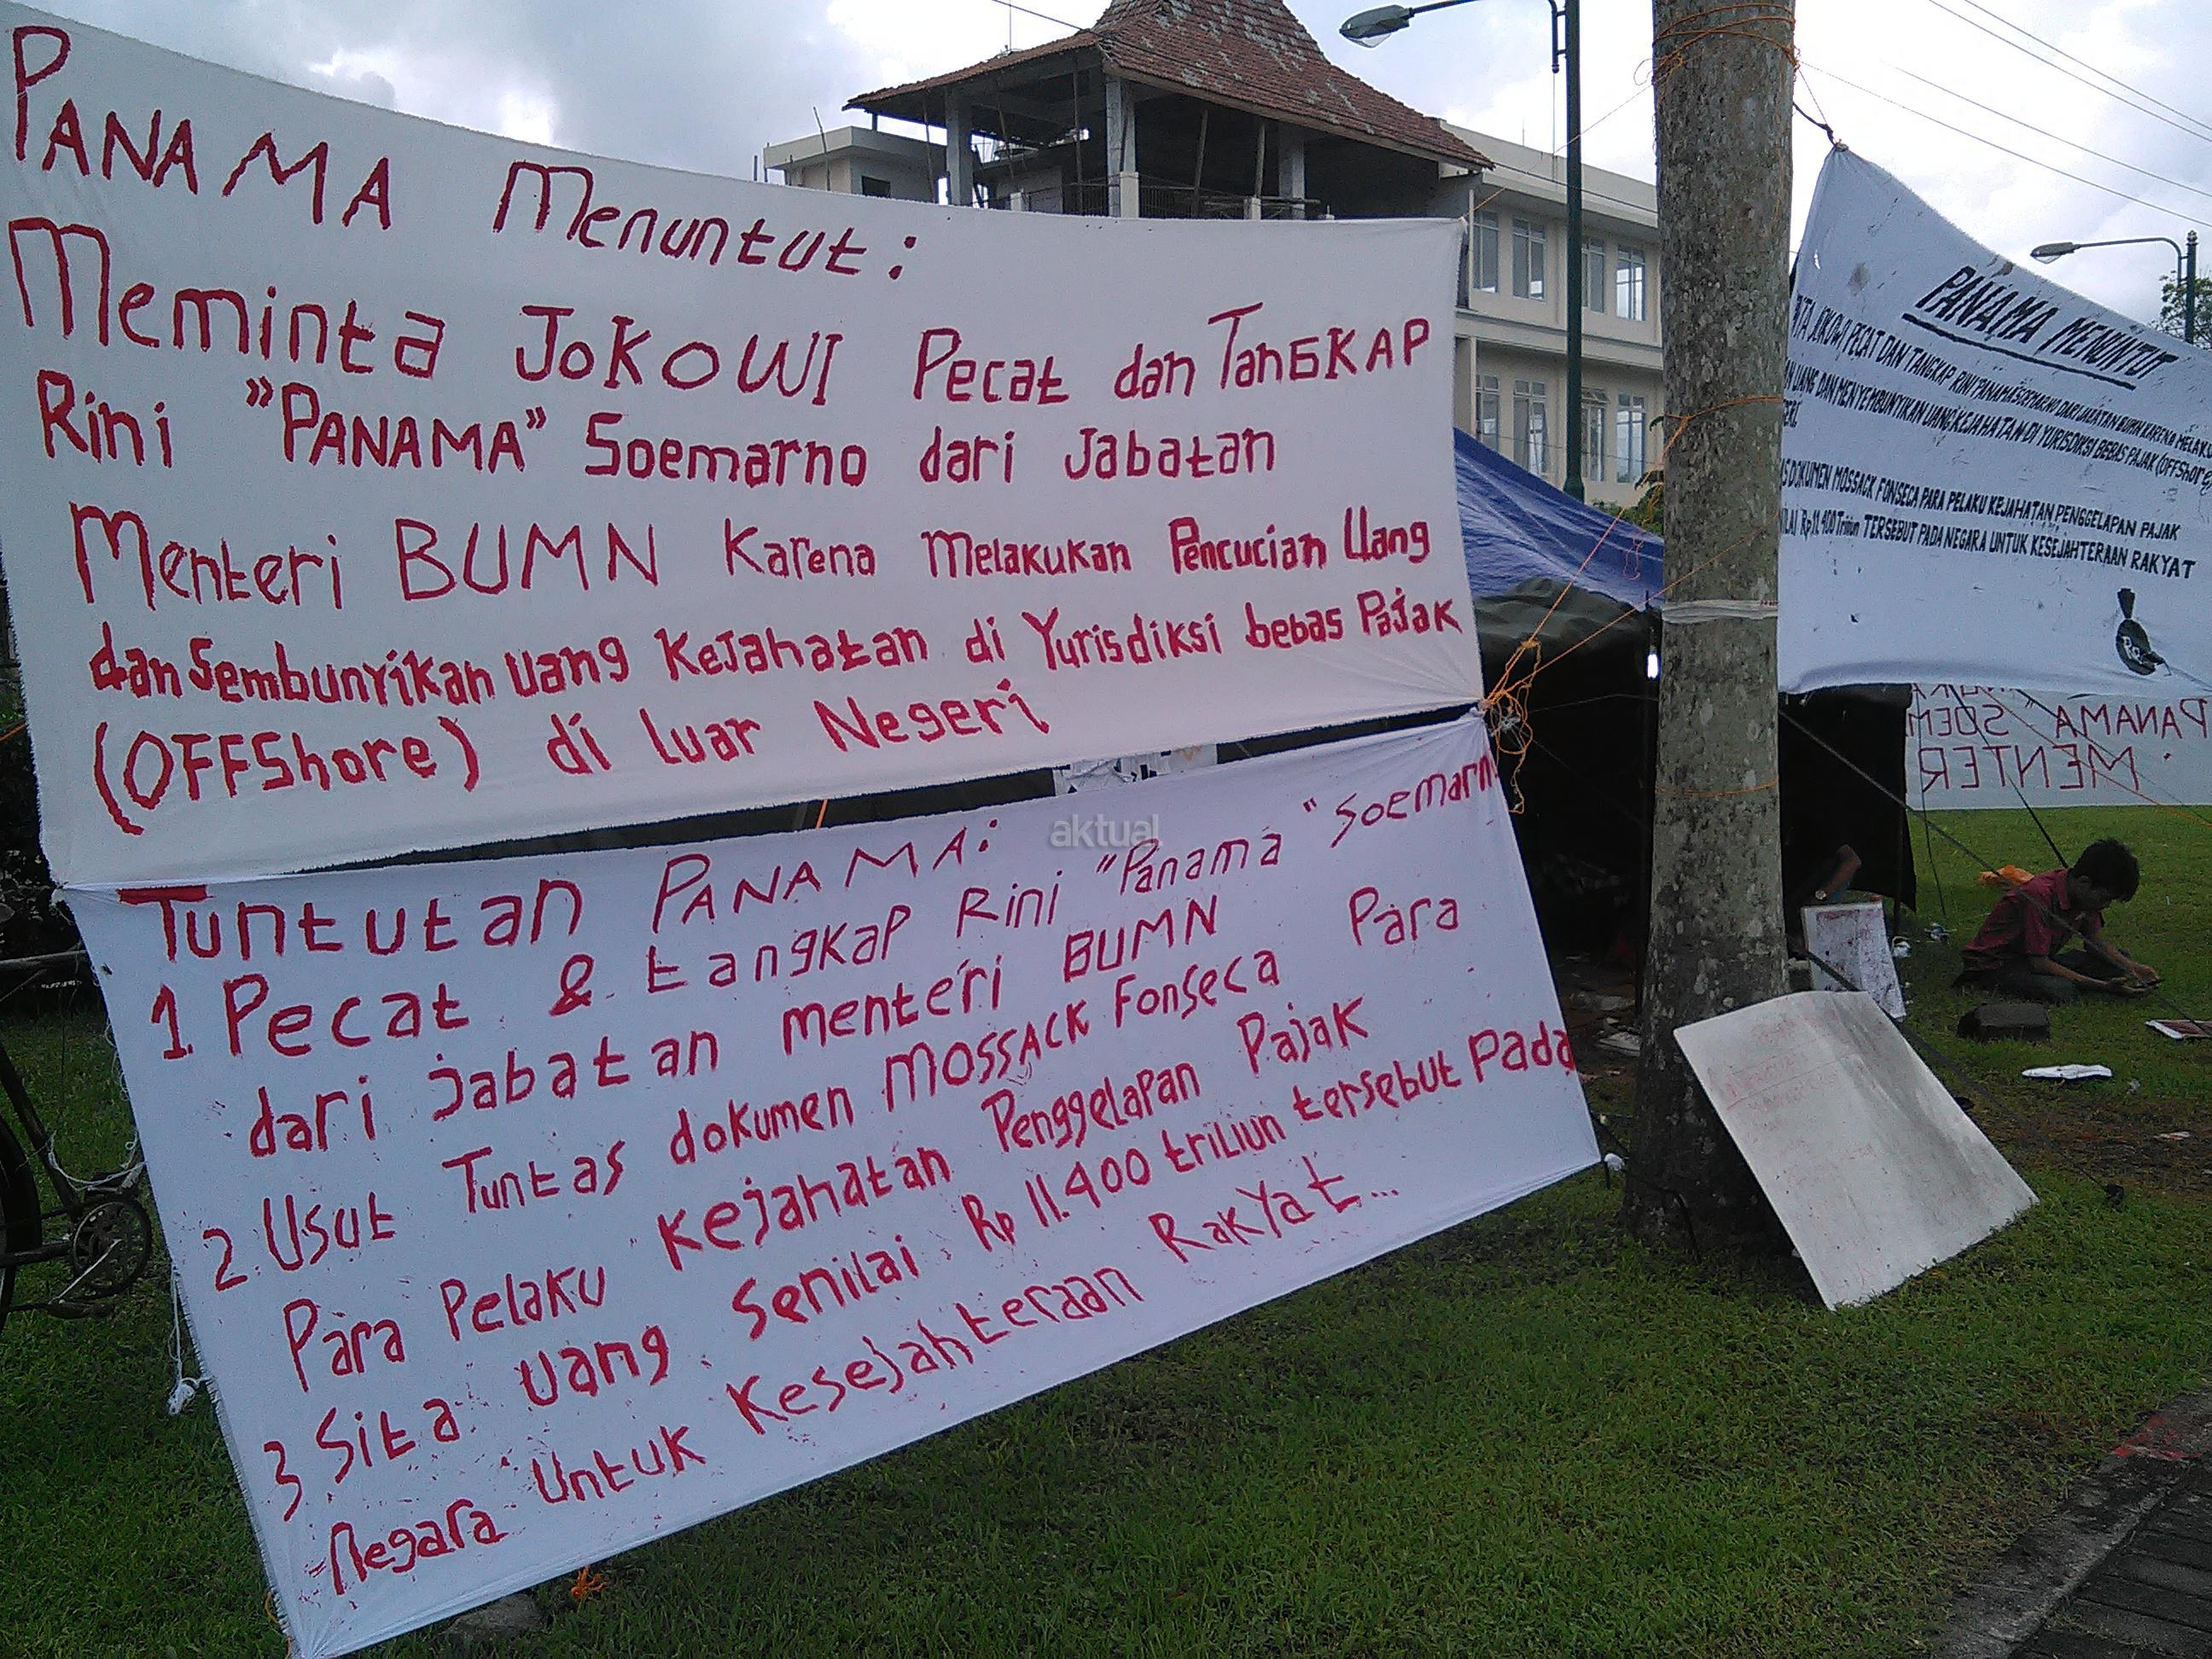 PANAMA Menuntut:
Meminta JOKOWI Pecat dan TanGKAP
Rini "PANAMA" Soemarno dari Jabatan
Menteri BUMN Karena Melakukan Pencucian Uang
dan Sembunyikan uang Kejahatan di Yurisdiksi bebas Pajak
(OFFShore) di luar Negeri
Tuntutan PANAMA:
1. Pecat & tangkap Rini "Panama" Soemarn
dari jabatan menteri BUMN
2. Usut Tuntas dokumen MOSSACK Fonseca Para
Para Pelaku Kejahatan Penggelapan Pajak
3 Sita uang Senilai Rp 11.400 triliun tersebut Pada
Negara Untuk Kesejahteraan Rakyat...
aktual
PANAMA MENUNTUT
JOKOWI PECAT DAN TANGKAP RINI PANAMA SOEMARNO DARI JABATAN BUMN KARENA MELAKU
UANG DAN MENYEMBUNYIKAN UANG KEJAHATAN DI YURISDIKSI BEBAS PAJAK (OFFShore
DOKUMEN MOSSACK FONSECA PARA PELAKU KEJAHATAN PENGGELAPAN PAJAK
LAI Rp.11.400 Triliun TERSEBUT PADA NEGARA UNTUK KESEJAHTERAAN RAKYAT
Rp
PANAMA" SOEM
MENTER